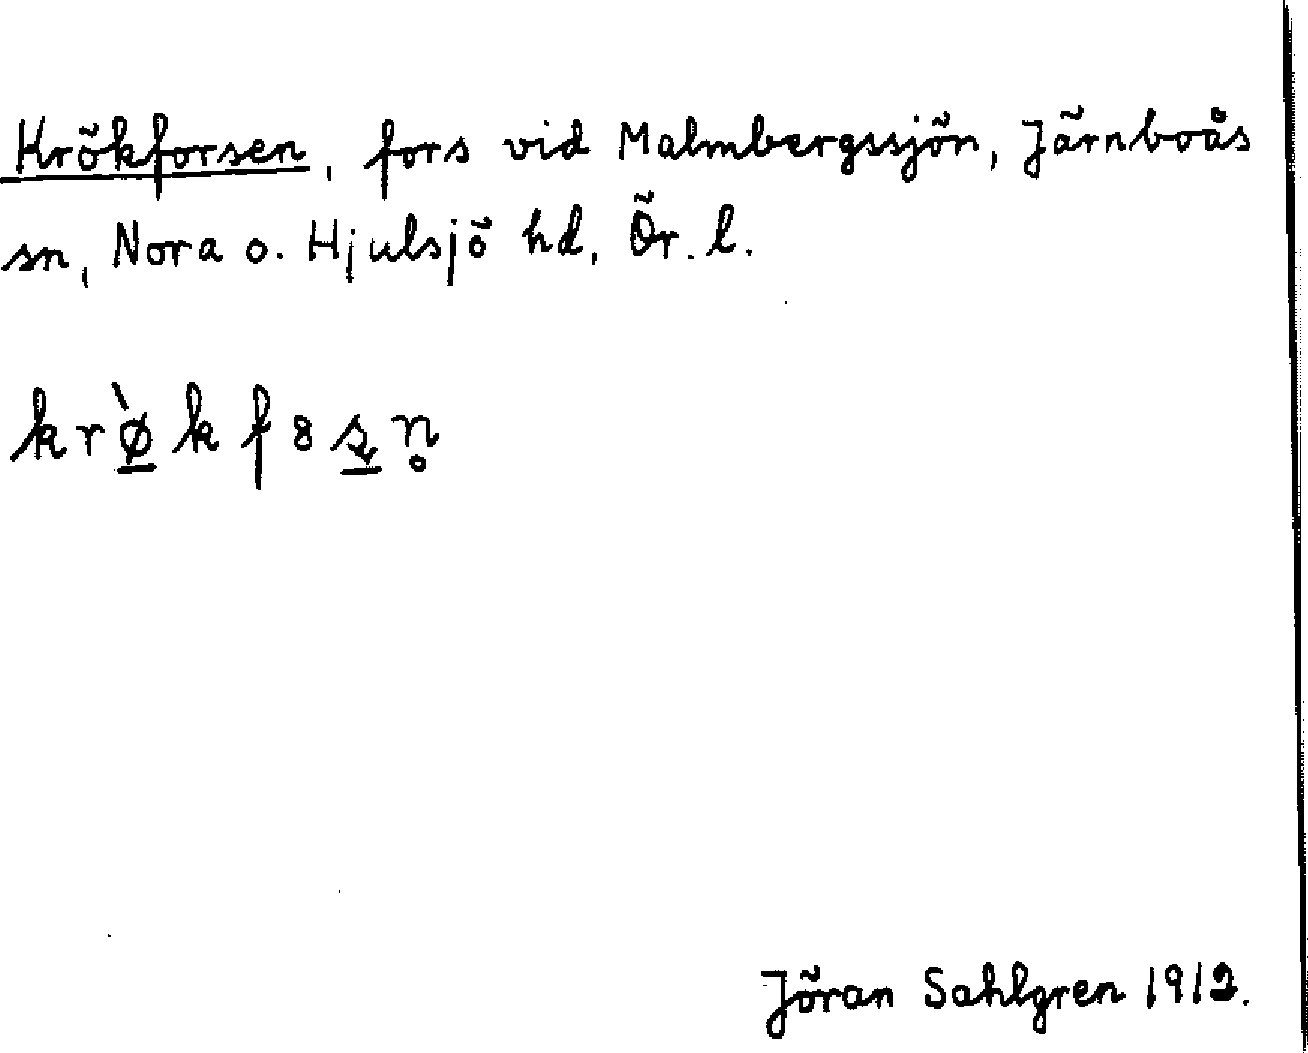 Krökforsen, fors vid Malmbergssjön, Järnboås
sn, Nora o. Hjulsjö hd, Ör. l.
krø̀kf8ʂn̥
Jöran Sahlgren 1912.